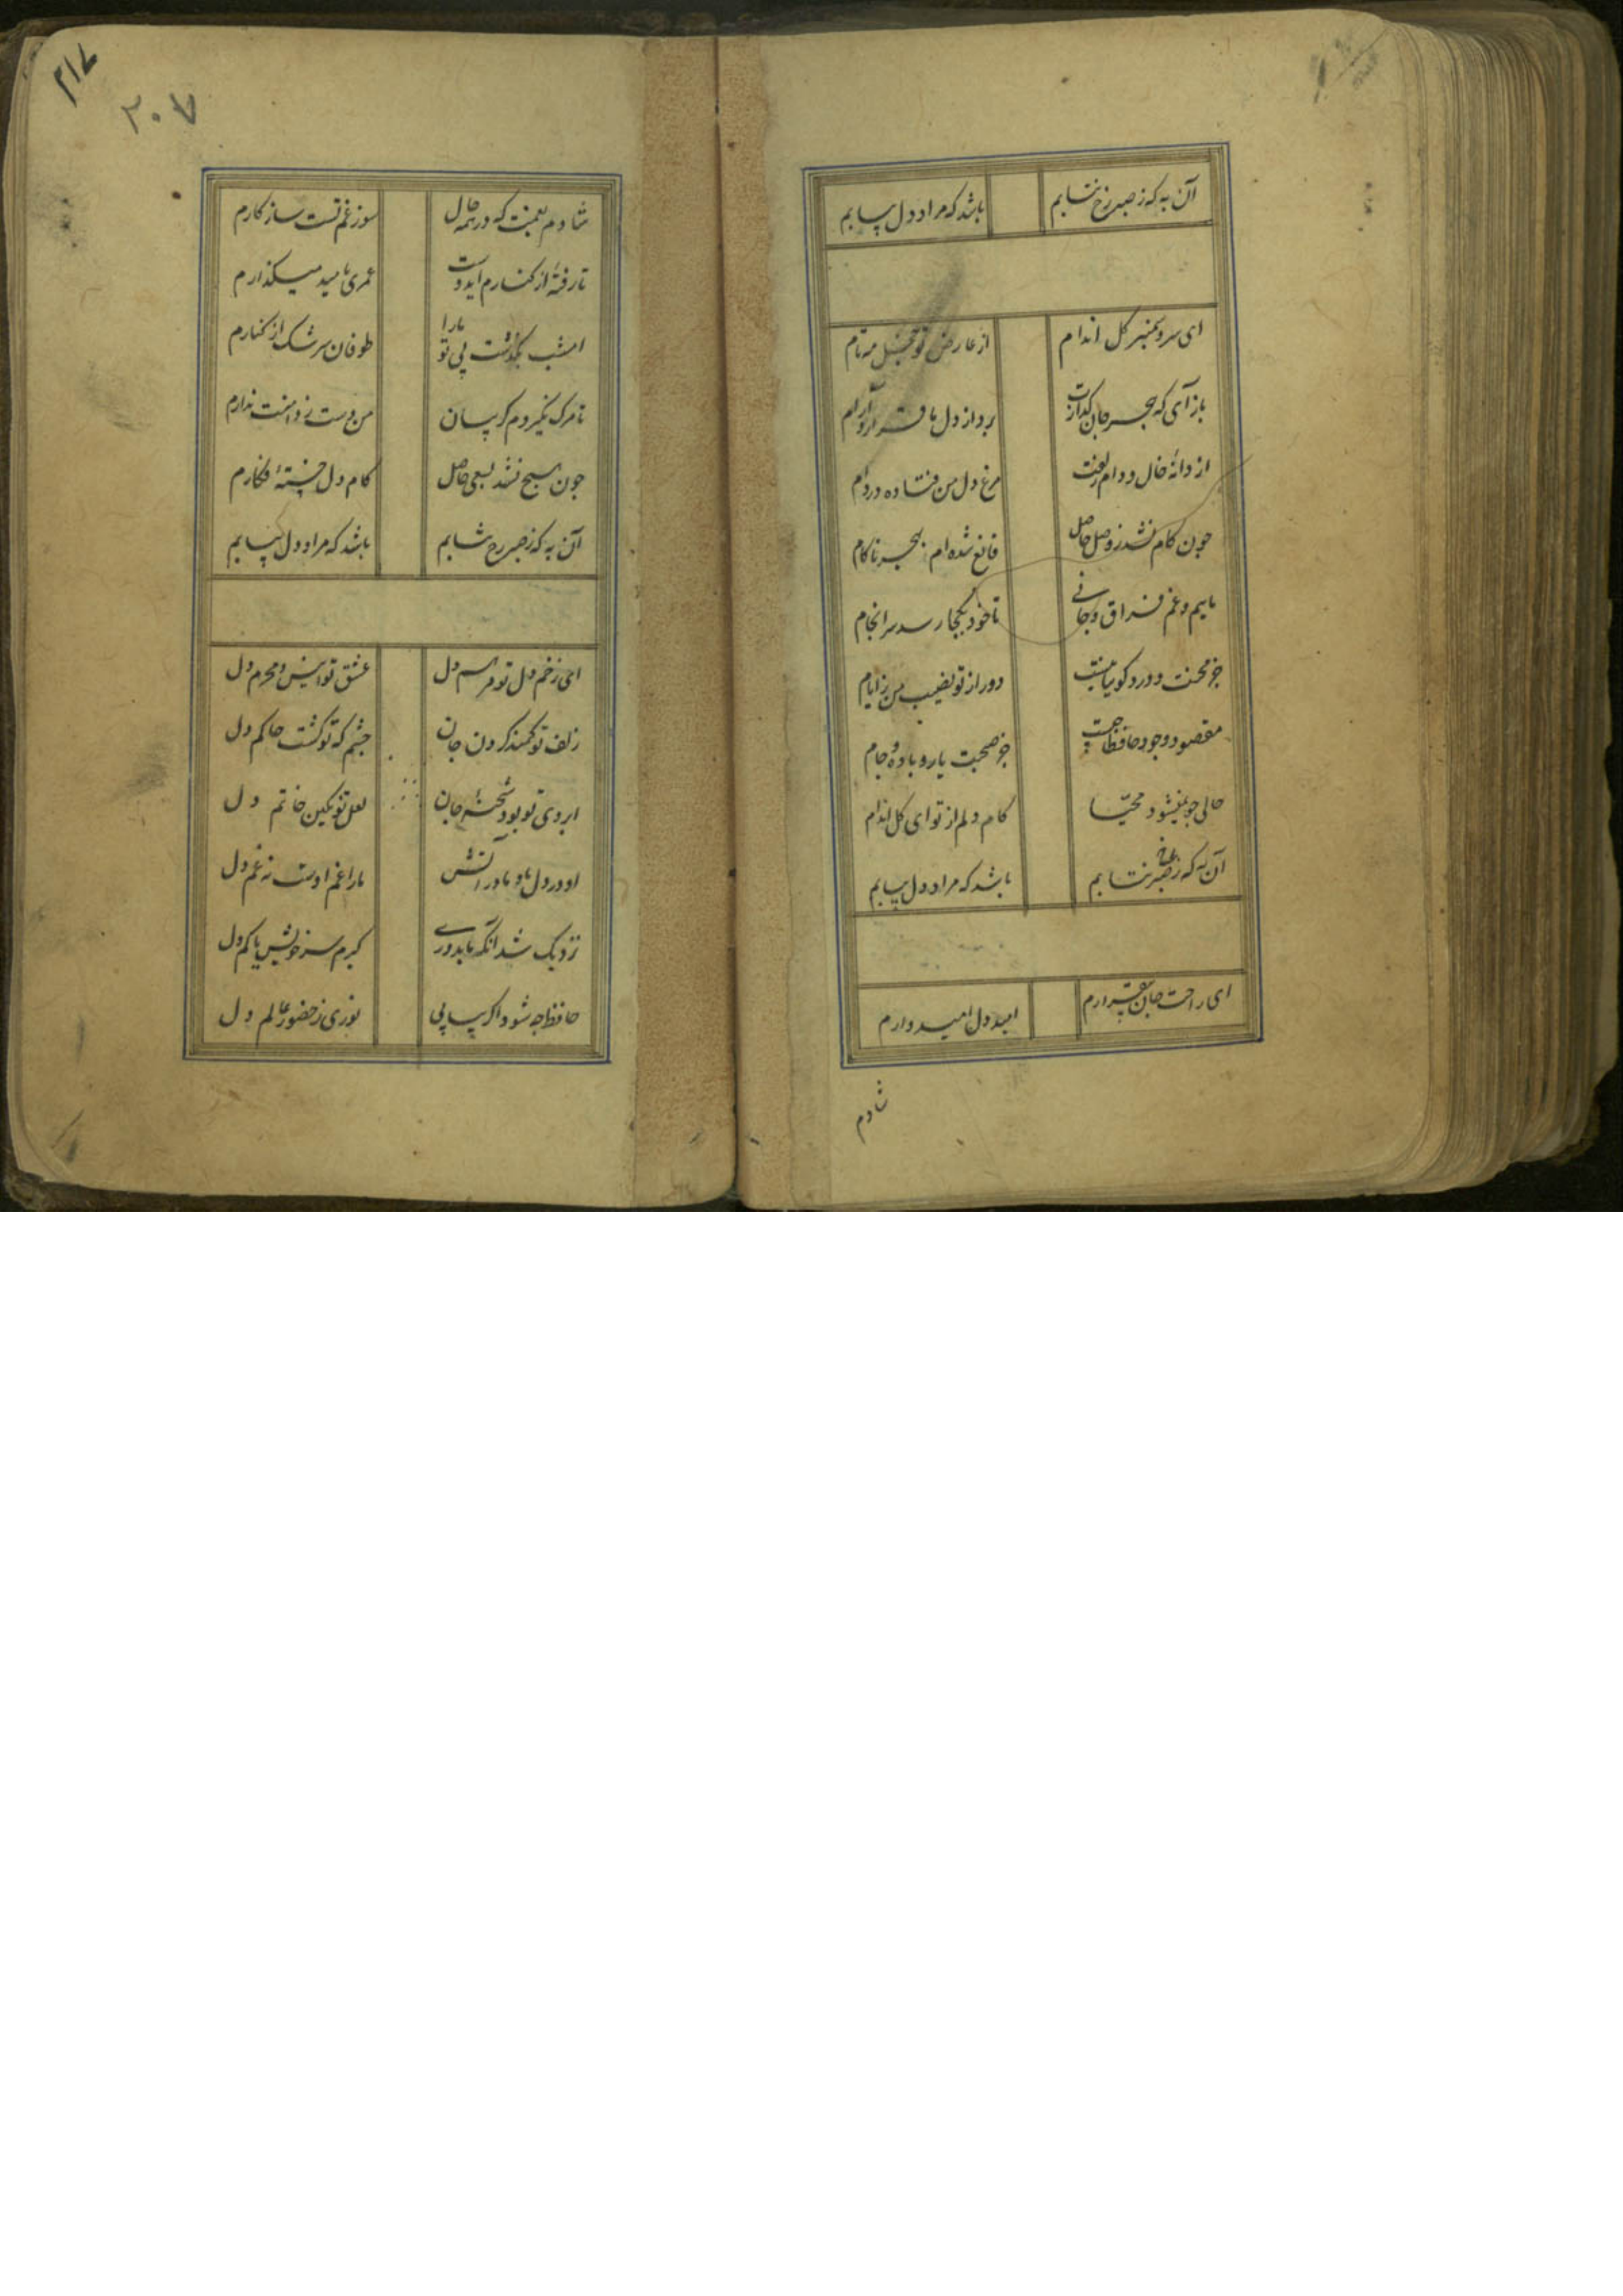 آن به که ز صبر رخ نتابم باشد که مراد دل بیابم
ای سرو سمنبر گل اندام از عارض تو خجل مه تام
باز آی که هجر جان گدازت برد از دل ما قرار و آرام
از دانهٔ خال و دام زلفت مرغ دل من فتاده در دام
چون کام نشد ز وصل حاصل قانع شده ام بهجر ناکام
ماییم و غم فراق و جانی تا خود بکجا رسد سرانجام
جز محنت و درد گوییا نیست دور از تو نصیب من ز ایام
مقصود وجود حافظا چیست جز صحبت یار و باده و جام
حالی چو نمیشود محیّا کام دلم از تو ای گل اندام
آن به که ز صبر رخ نتابم باشد که مراد دل بیابم
ای راحت جان بیقرارم امید دل امیدوارم
شادم
۲۱۷
۲۰۷
شادم بغمت که در همه حال سوز غم تست سازگارم
تا رفتهٔ از کنارم ای دوست عمری بامید میگذارم
امشب بگذشت بی تو ما را طوفان سرشک از کنارم
تا مرگ نگیردم گریبان من دست ز دامنت ندارم
چون هیچ نشد بسعی حاصل کام دل خستهٔ فگارم
آن به که ز صبر رخ نتابم باشد که مراد دل بیابم
ای زخم دل تو مرهم دل عشق تو انیس و محرم دل
زلف تو کمند گردن جان چشم که تو گشت حاکم دل
ابروی تو بود شحنهٔ جان لعل تو نگین خاتم دل
او در دل ما و ما در آتش ما را غم اوست نه غم دل
نزدیک شد آنکه ما بدوری گیرم سر خویش یا کم دل
حافظ چه شود اگر بیابی نوری ز حضور عالم دل